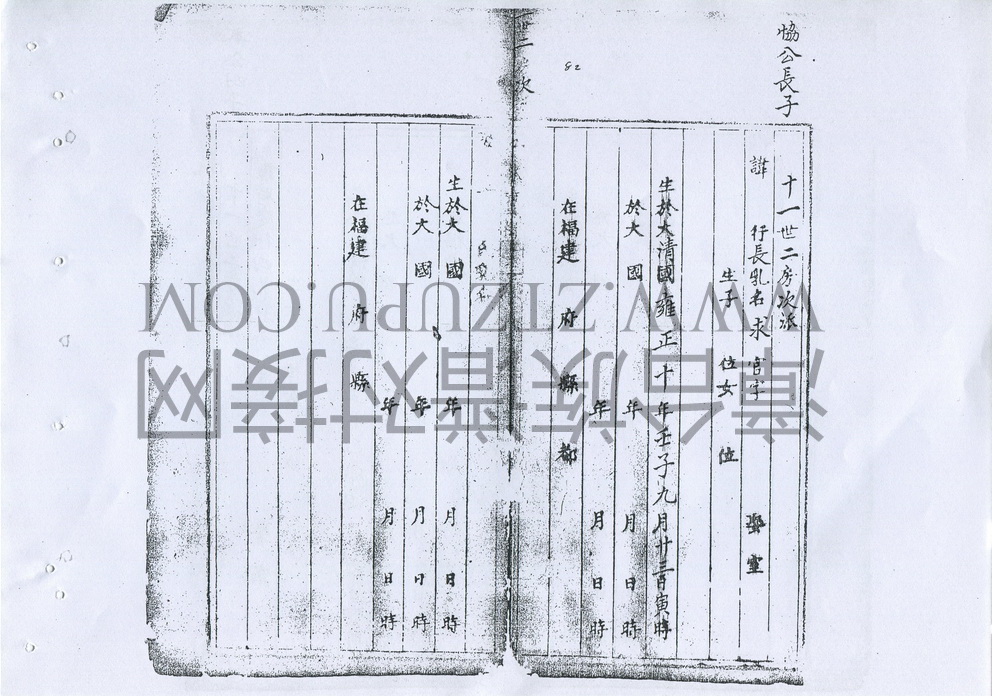 協公長子
十一世二房次派
諱 行長乳名求官字
生子 位女 位
生於大清國雍正十年壬子九月廿三日寅時
於大 國 年 月 日 時
年 月 日 時
在福建 府 縣 都
82
世二 次
生於大 國 年 月 日 時
於大 國 年 月 日 時
年 月 日 時
在福建 府 縣
漳台族谱对接网
WWW.ZTZUPU.COM